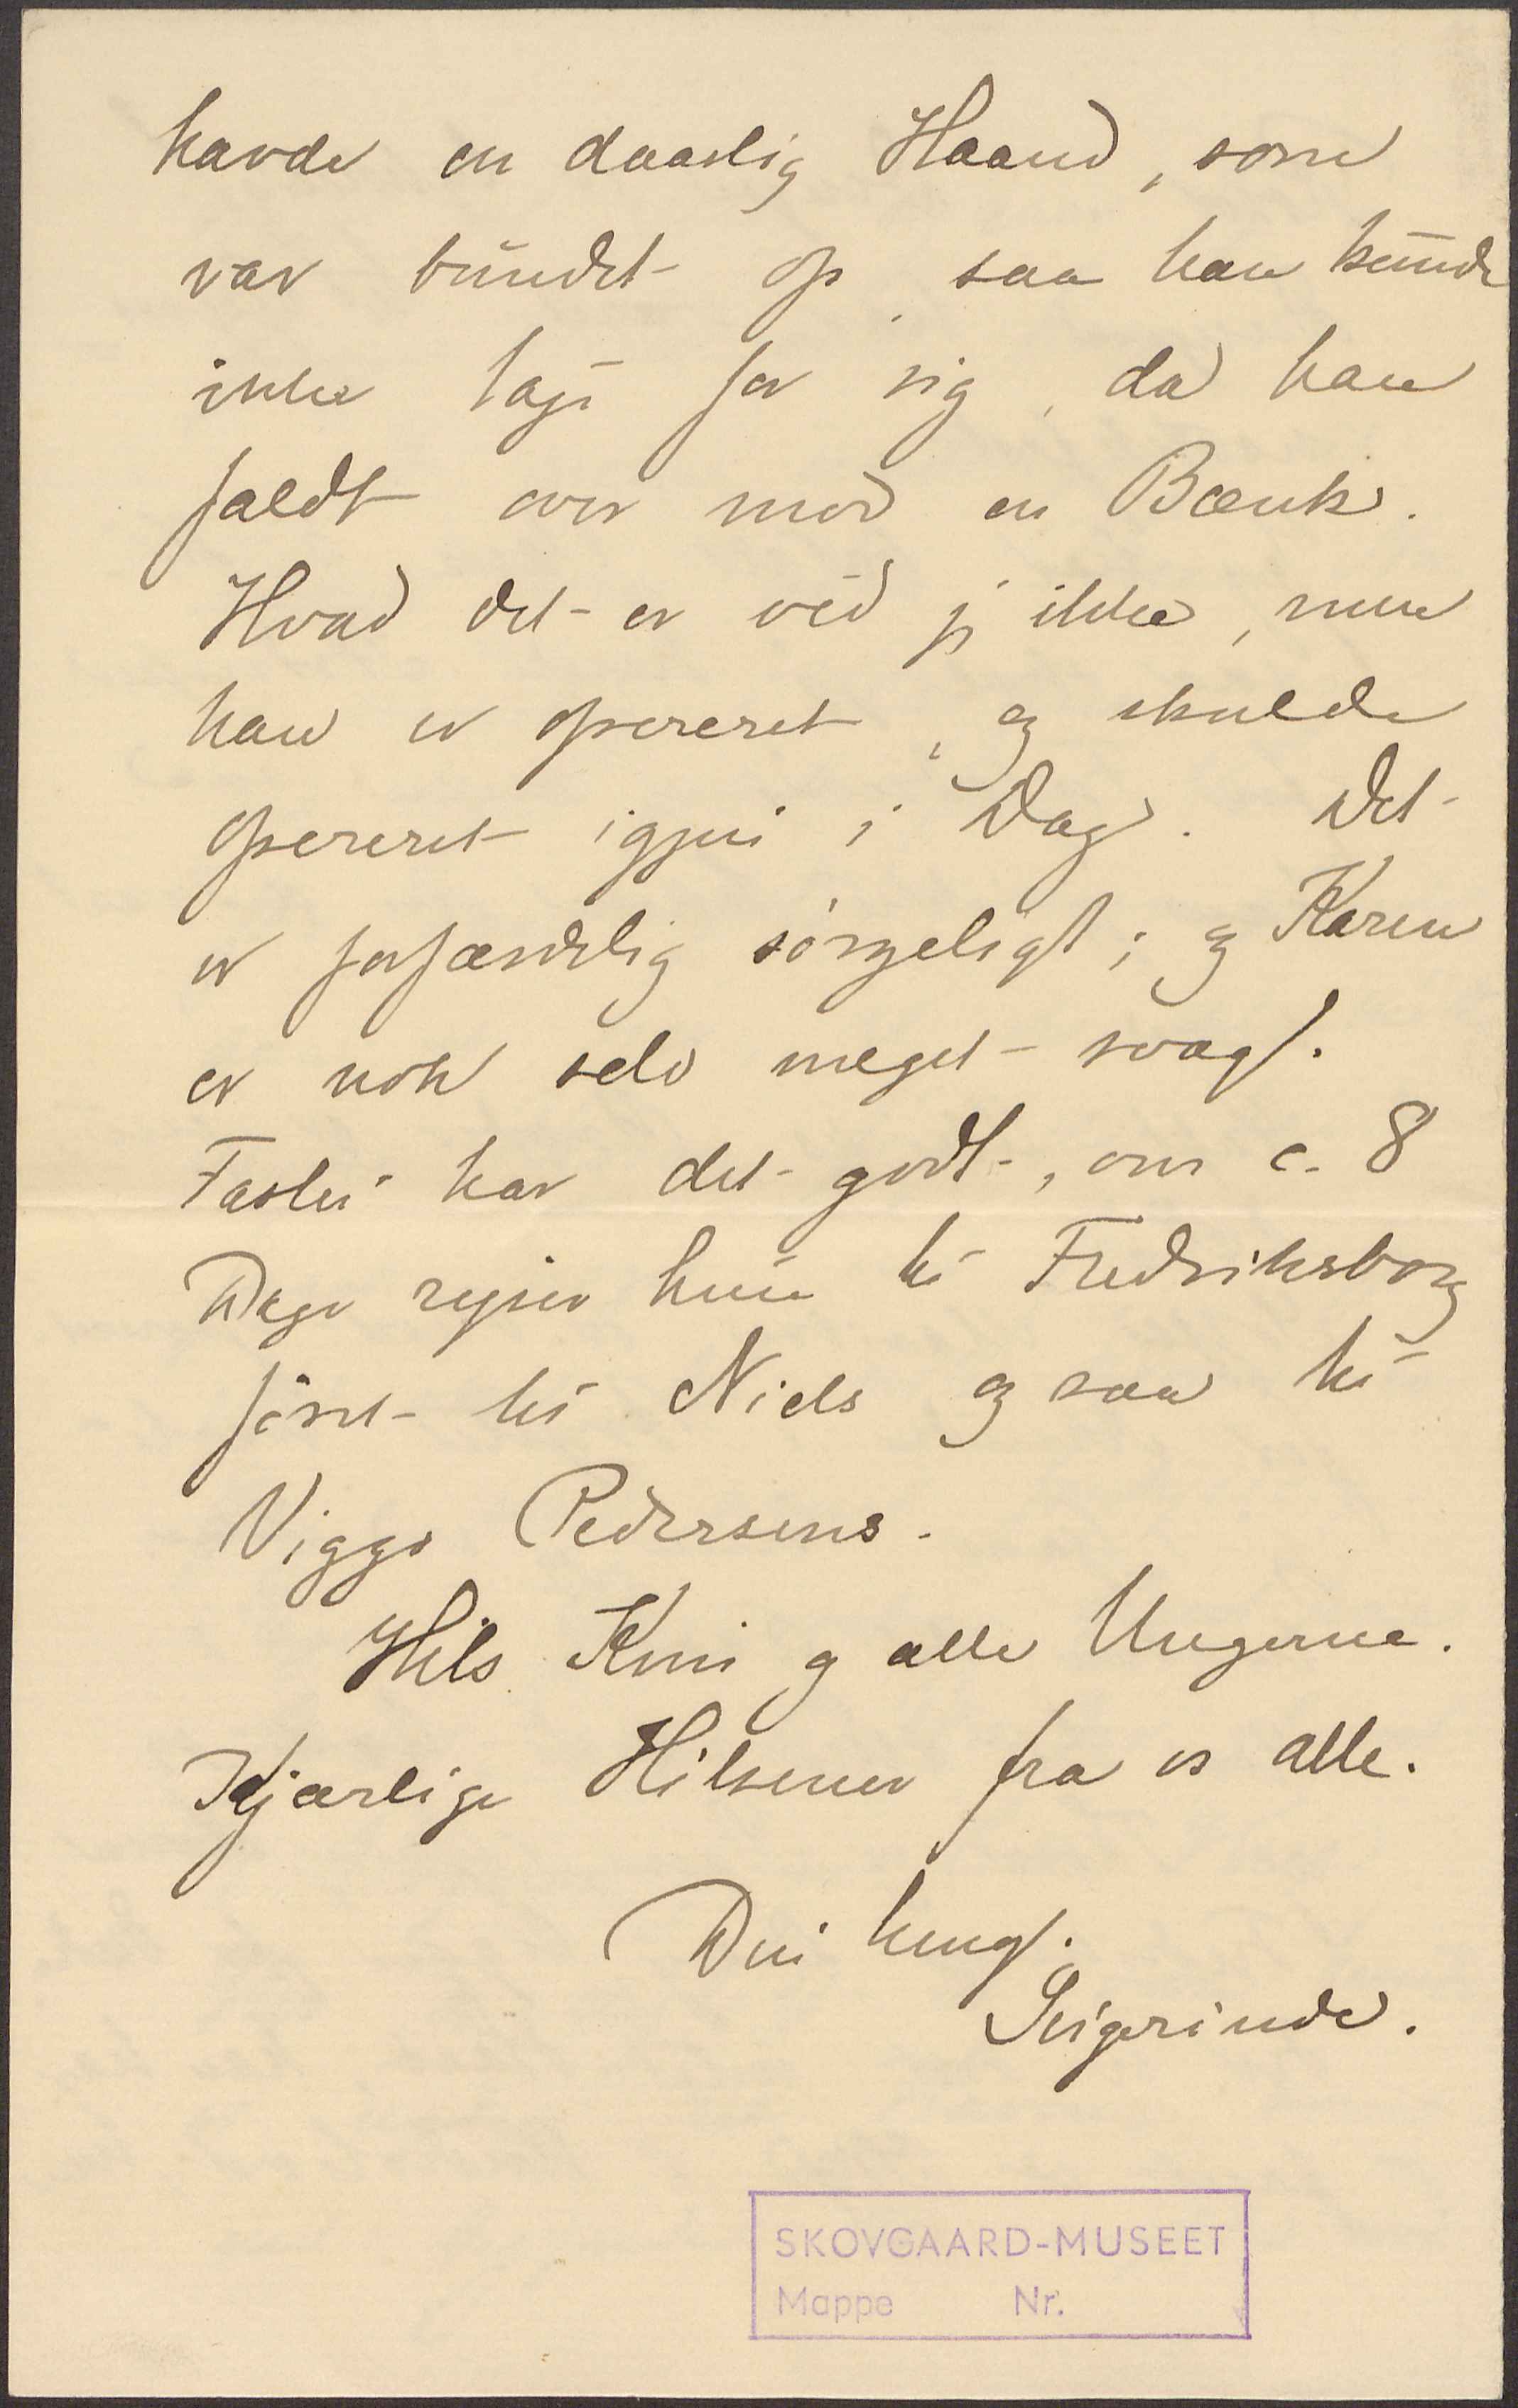 havde en daarlig Haand, som
var bundet op, saa han kunde
ikke tage for sig, da han
faldt over mod en Bænk.
Hvad det er véd jeg ikke, men
han er opereret, og skulde
opereret igjen i Dag. Det
er forfærdelig sørgeligt; og Karen
er nok selv meget svag.
Faster har det godt, om c. 8
Dage rejser hun til Fredriksborg
først til Niels og saa til
Viggo Pedersens.
Hils og alle Ungerne.
Kjærlige Hilsener fra os alle.
Din heng.
Svigerinde.
SKOVGAARD-MUSEET
Mappe Nr.